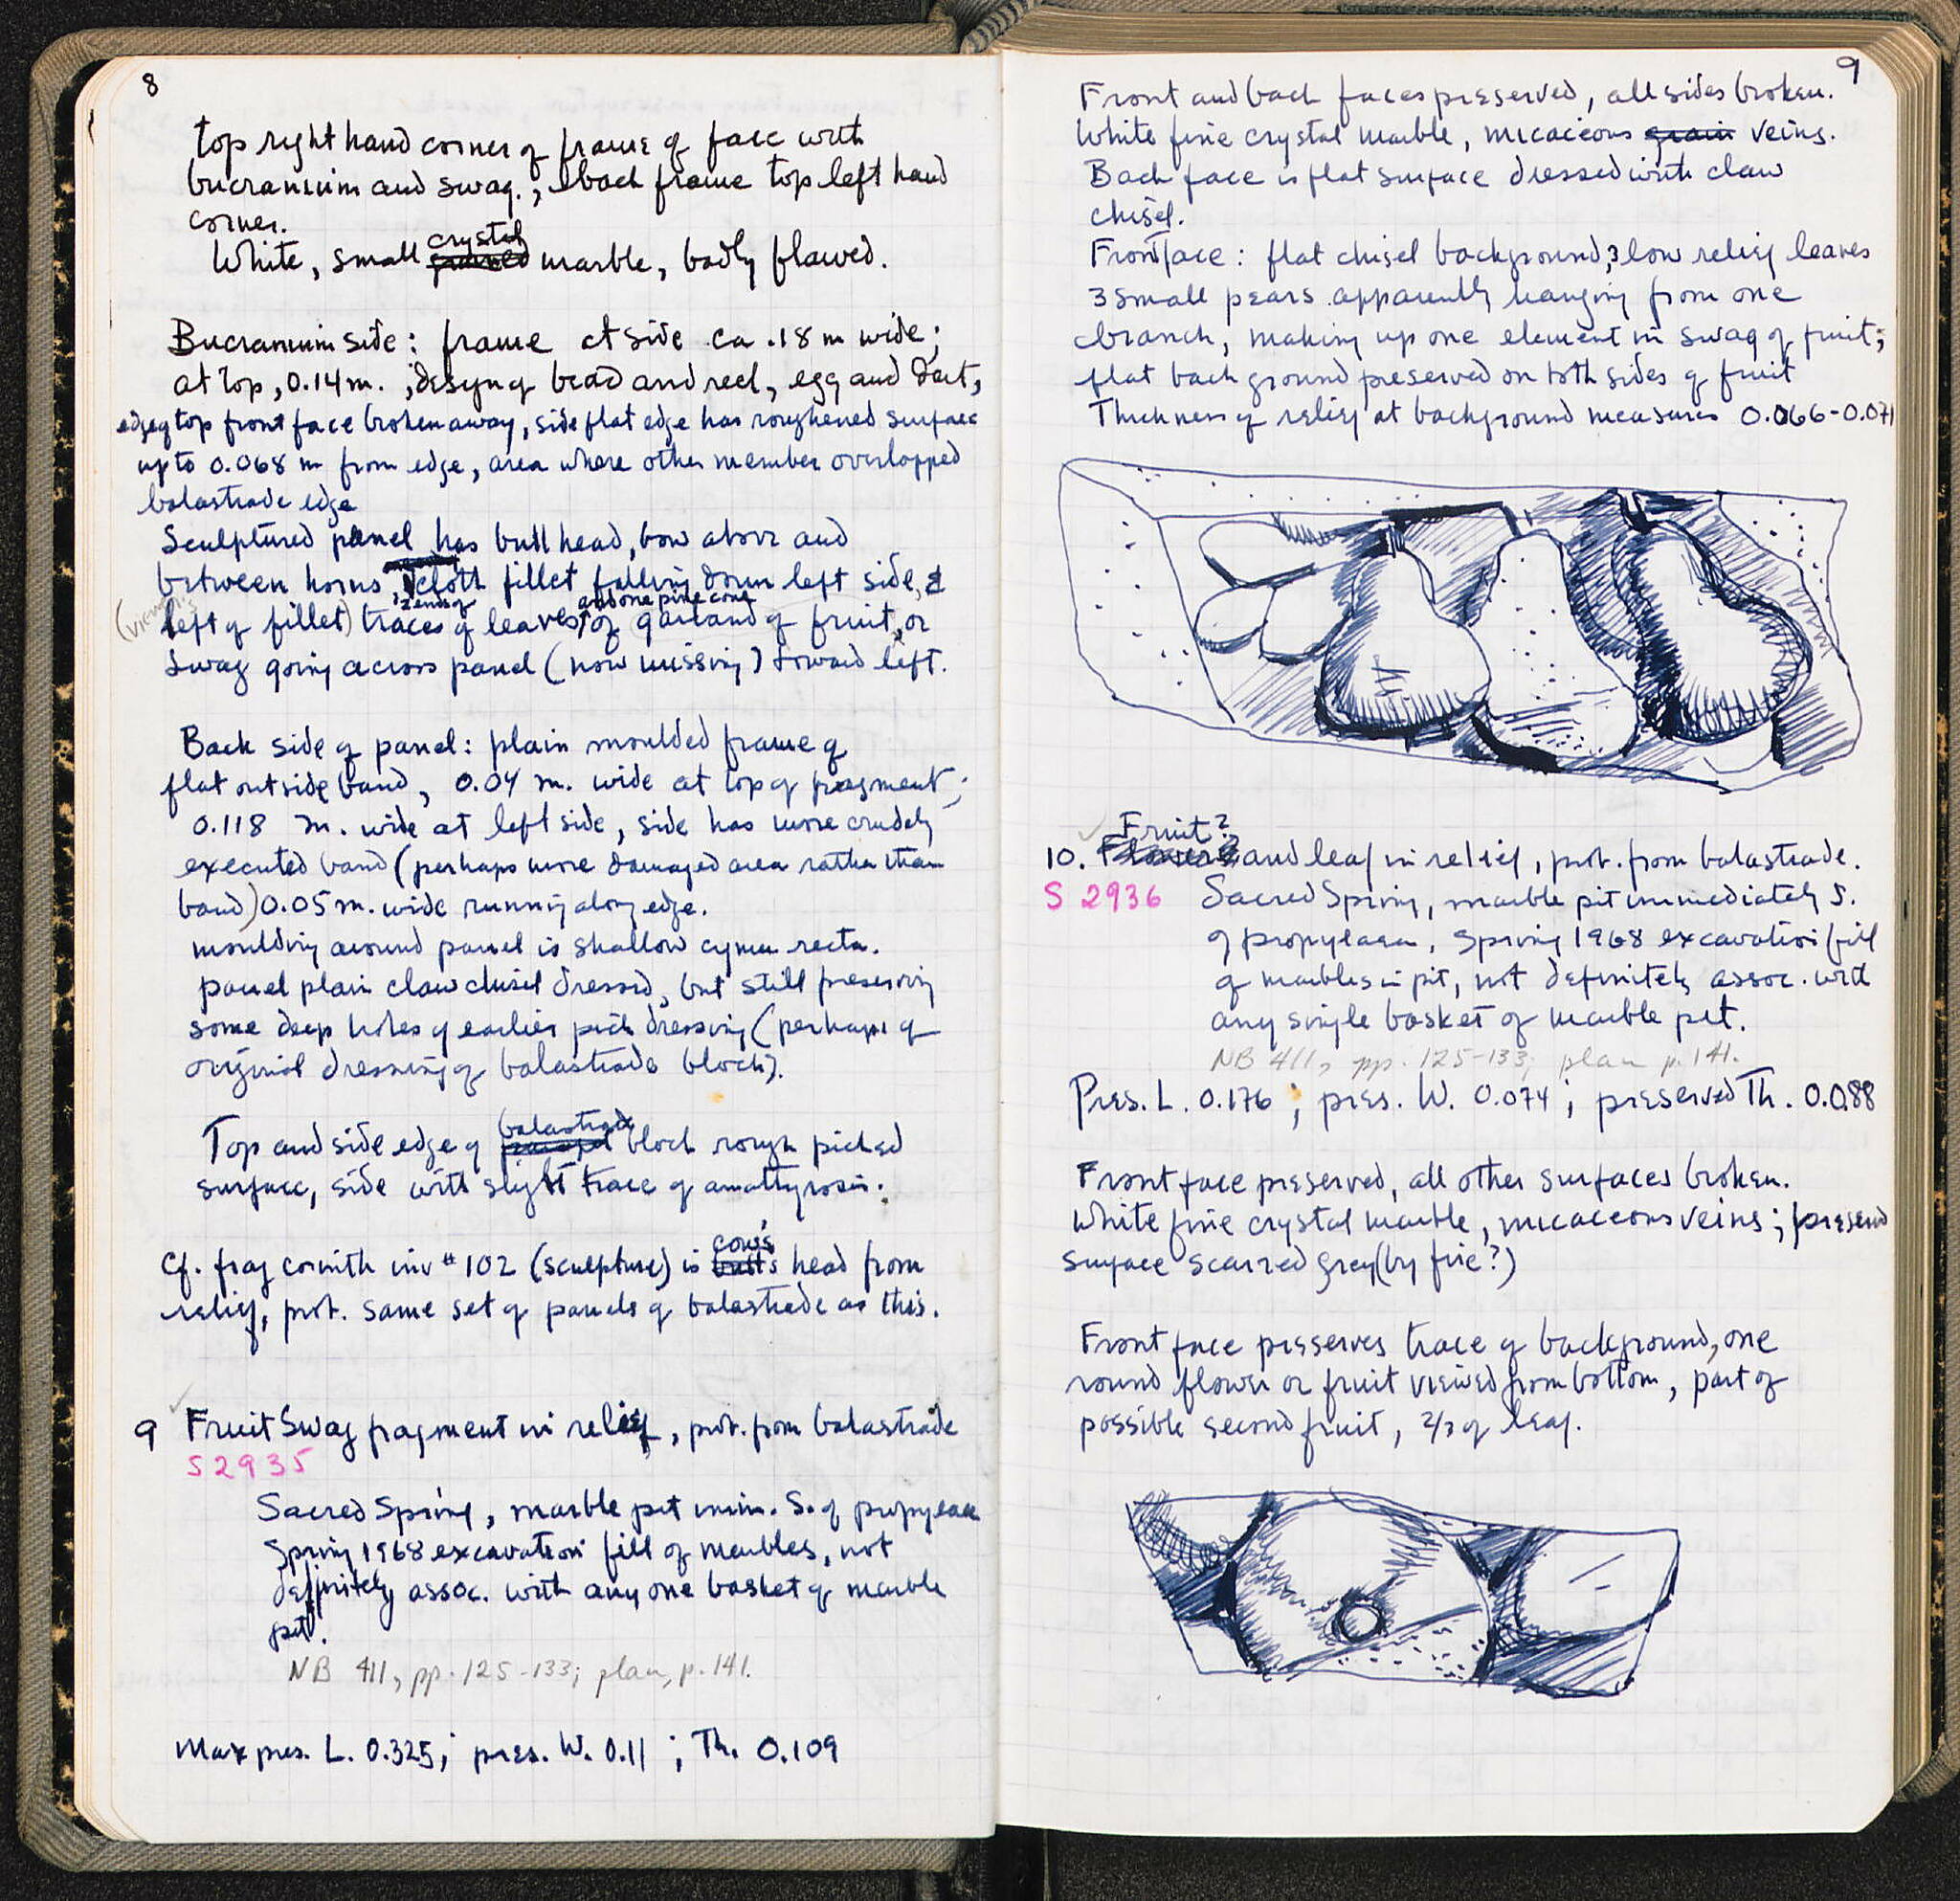 8
top right hand corner of frame of face with
bucranium and swag., back frame top left hand
corner.
White, small crystal grained marble, badly flawed.
Bucranium side: frame at side ca .18 m wide;
at top, 0.14 m. ; design of bead and reel, egg and dart,
edge of top front face broken away, side flat edge has roughened surface
up to 0.068 m from edge, area where other member overlapped
balastrade edge
Sculptured panel has bull head, bow above and
between horns, cloth fillet falling down left side, &
(viewer's left of fillet) traces 2 ends of of leaves and one pine cone of garland of fruit, or
swag going across panel (now missing) toward left.
Back side of panel: plain moulded frame of
flat outside band, 0.04 m. wide at top of fragment;
0.118 m. wide at left side, side has more crudely
executed band (perhaps more damaged area rather than
band) 0.05 m. wide running along edge.
moulding around panel is shallow cyma recta.
panel plain claw chisel dressed, but still preserving
some deep holes of earlier pick dressing (perhaps of
original dressing of balastrade block).
Top and side edge of balastrade block rough picked
surface, side with slight trace of anathyrosis.
Cf. frag corinth inv # 102 (sculpture) is cow's bull's head from
relief, prob. same set of panels of balastrade as this.
9 Fruit Swag fragment in relief, prob. from balastrade
S 2935
Sacred Spring, marble pit imm. S. of propylaea
Spring 1968 excavation fill of marbles, not
definitely assoc. with any one basket of marble
pit.
NB 411, pp. 125-133; plan, p. 141.
Max pres. L. 0.325; pres. W. 0.11 ; Th. 0.109
9
Front and back faces preserved, all sides broken.
White fine crystal marble, micaceous grain veins.
Back face is flat surface dressed with claw
chisel.
Front face: flat chisel background, 3 low relief leaves
3 small pears apparently hanging from one
branch, making up one element in swag of fruit;
flat background preserved on both sides of fruit
Thickness of relief at background measures 0.066-0.071
Fruit?
10. Flower and leaf in relief, prob. from balastrade.
S 2936 Sacred Spring, marble pit immediately S.
of propylaea, Spring 1968 excavation fill
of marbles in pit, not definitely assoc. with
any single basket of marble pit.
NB 411, pp. 125-133; plan p. 141.
Pres. L. 0.176 ; pres. W. 0.074 ; preserved Th. 0.088
Front face preserved, all other surfaces broken.
White fine crystal marble, micaceous veins; preserved
surface scarred grey (by fire?)
Front face preserves trace of background, one
round flower or fruit viewed from bottom, part of
possible second fruit, 2/3 of leaf.